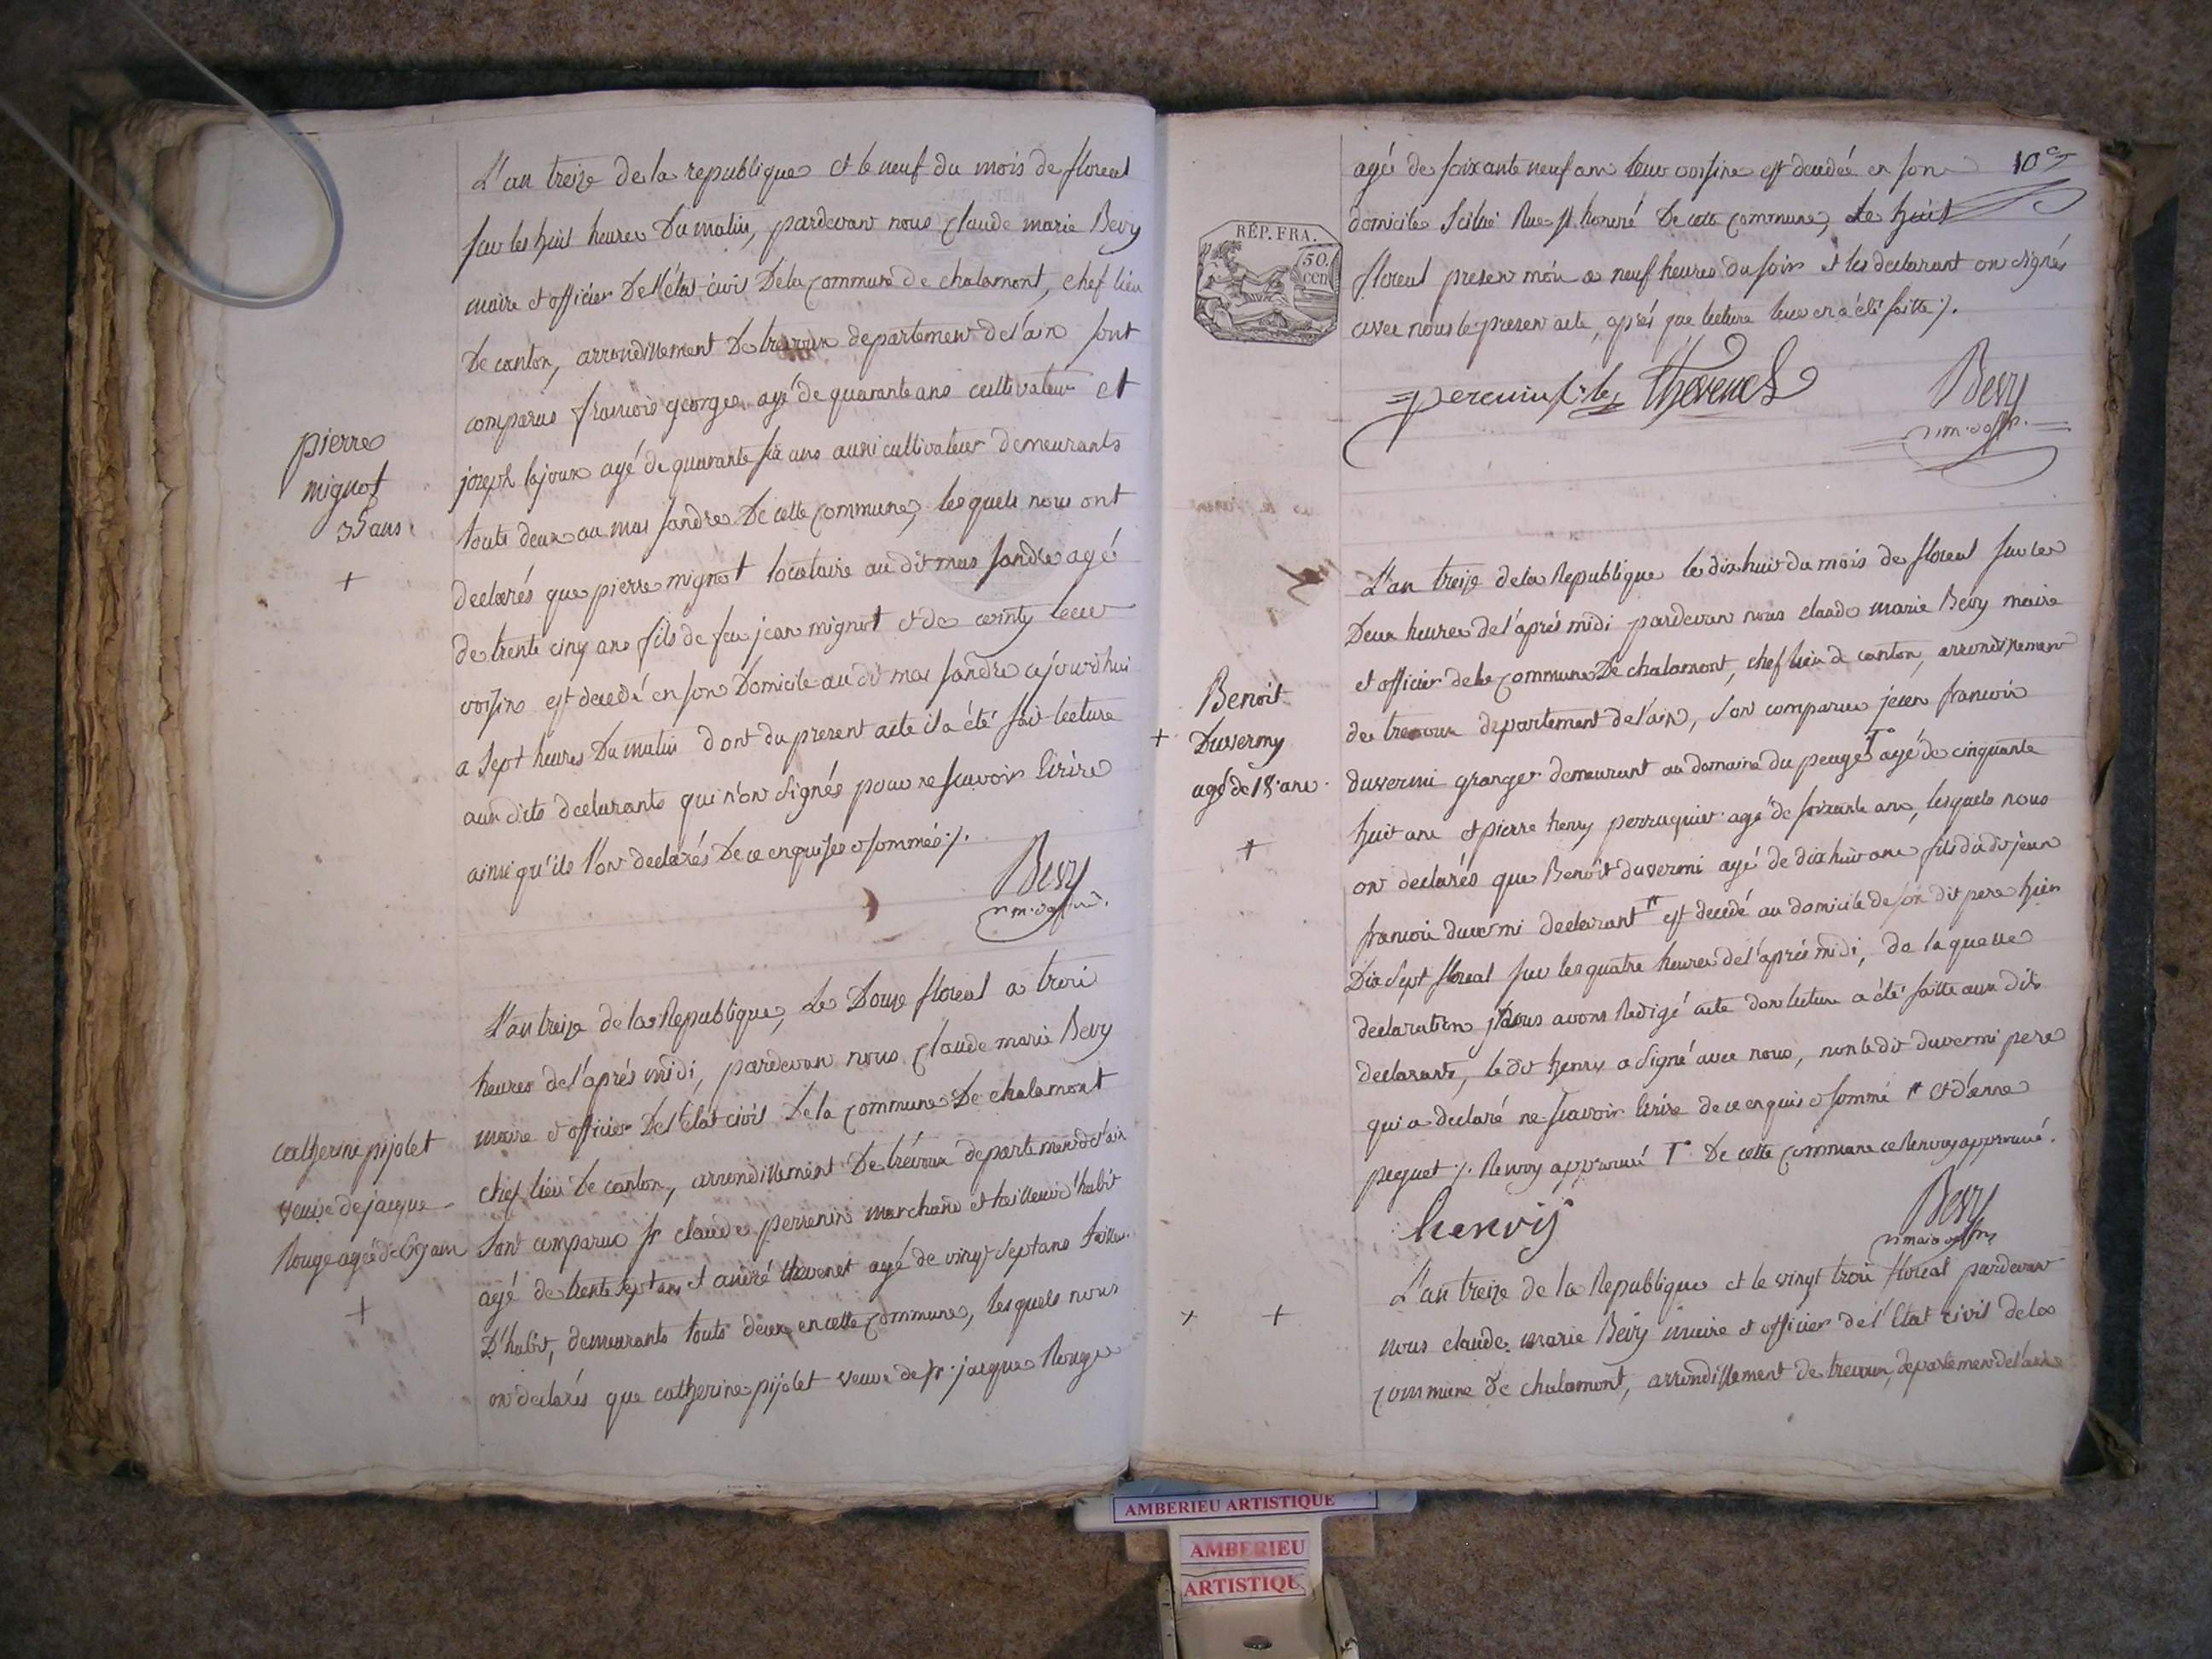 L'an treize de la republique et le neuf du mois de floreal
sur les huit heures du matin, pardevant nous claude marie Bevy
maire et officier de l'état civil de la commune de chalamont, chef lieu
de canton, arrondissement de trevoux departement de l'ain sont
comparus francois georges agé de quarante ans cultivateur et
joseph lajoux agé de quarante six ans aussi cultivateur demeurants
touts deux au mas fandre de cette commune, lesquels nous ont
declarés que pierre mignot locataire au dit mas fandre agé
de trente cinq ans fils de feu jean mignot et de leur
voisine est decedé en son domicile au dit mas fandre cejourd'hui
a sept heures du matin dont du present acte il a été fait lecture
aux dits declarants qui n'ont signés pour ne scavoir écrire
ainsi qu'ils l'ont declarés de ce enquises et sommés ./.
Bevy
pierre
mignot
35 ans
+
L'an treize de la Republique, le douze floreal a troi
heures de l'après midi, pardevant nous claude marie Bevy
maire et officier de l'état civil de la commune de chalamont
chef lieu de canton, arrondissement de trévoux departement de l'ain
sont comparus sr claude perrenin marchand et tailleur d'habit
agé de trente sept ans et andré thevenet agé de vingt sept ans tailleur
d'habit, demeurants touts deux en cette commune, lesquels nous
ont declarés que catherine pijolet veuve de sr jacque Rouge
catherine pijolet
veuve de jacque
Rouge agée de 69 ans
+
10
agée de soixante neuf ans leur voisine est decedée en son
domicile scitué Rue st honoré de cette commune, le huit
floreal present mois a neuf heures du soir et les declarant ont signés
avec nous le present acte, après que lecture leur en a été faitte ./.
RÉP. FRA.
50.
cen
thevenet
Bevy
L'an treize de la Republique le dix huit du mois de floreal sur les
deux heures de l'après midi pardevant nous claude marie Bevy maire
et officier de la commune de chalamont, chef lieu de canton, arrondissement
de trevoux departement de l'ain, sont comparus jean francois
duvermi granger demeurant au domaine du peuge agé de cinquante
huit ans et pierre henry perruquier agé de soixante ans, lesquels nous
ont declarés que Benoît duvermi agé de dix huit ans fils du dit jean
francois duvermi declarant est decedé au domicile de son dit pere hier
dix sept floreal sur les quatre heures de l'après midi, de laquelle
declaration nous avons redigé acte dont lecture a été faitte aux dits
declarants, le dit henry a signé avec nous, non le dit duvermi pere
qui a declaré ne scavoir écrire de ce enquis et sommé et d'anne
peguet ./. Renvoy approuvé de cette commune ce Renvoy approuvé.
henry
Bevy
Benoit
+ Duvermy
agé de 18 ans
+
L'an treize de la Republique et le vingt troi floreal pardevant
nous claude marie Bevy maire et officier de l'état civil de la
commune de chalamont, arrondissement de trevoux, departement de l'ain
+
AMBERIEU ARTISTIQUE
AMBERIEU
ARTISTIQU